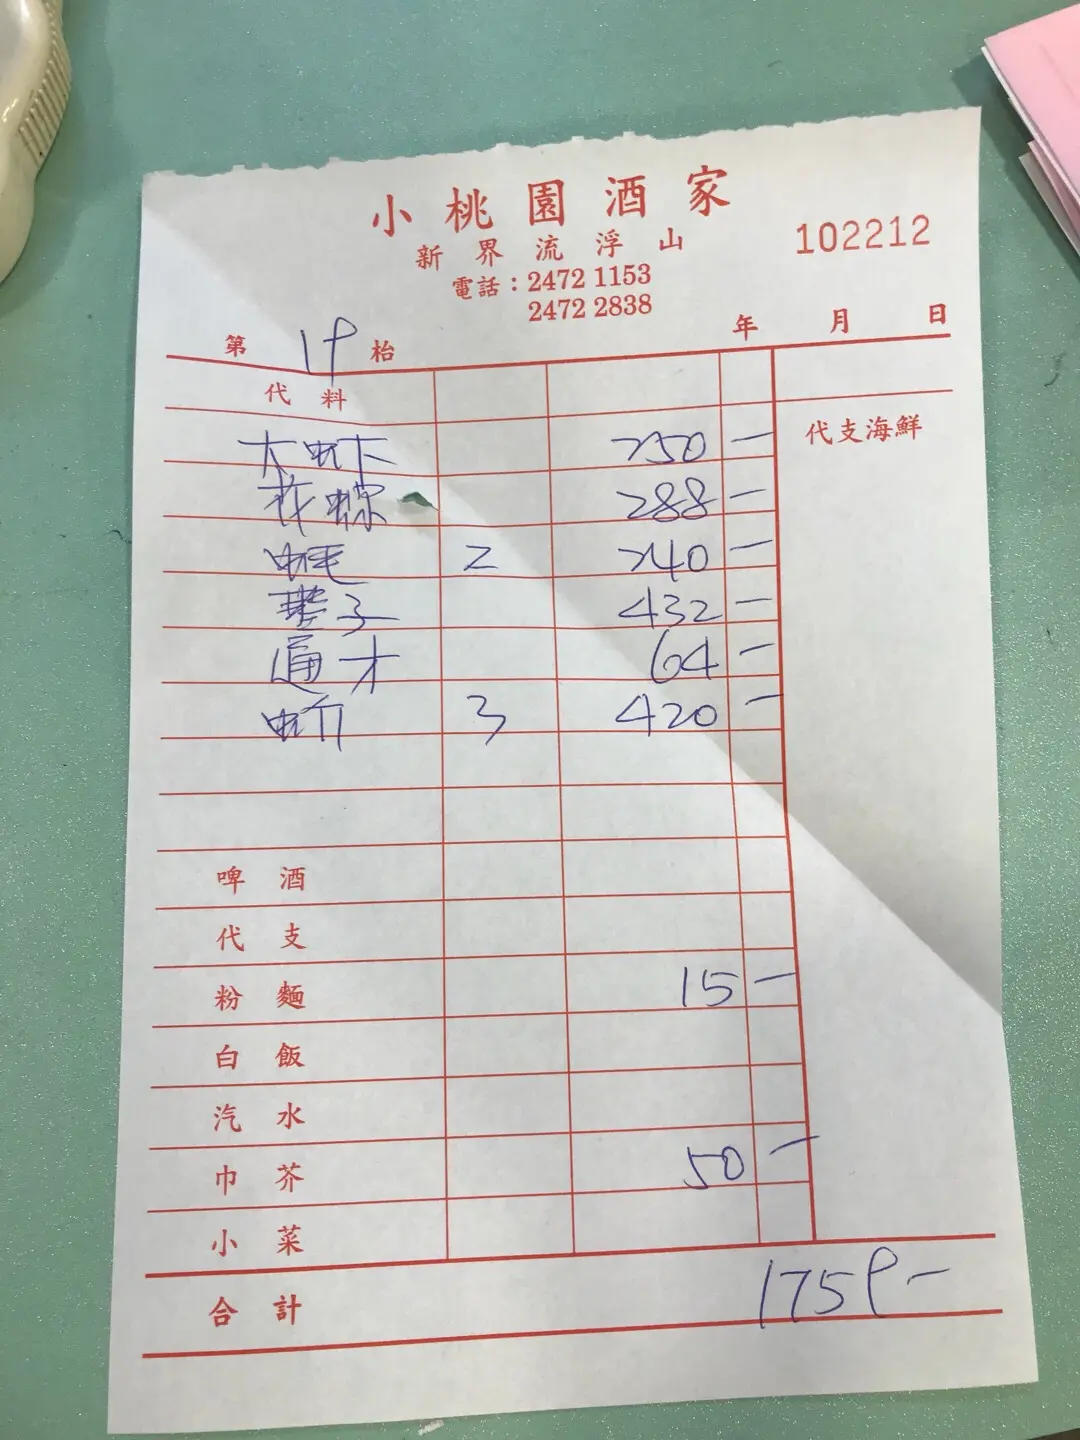 小桃園酒家
新界流浮山
102212
電話：2472 1153
2472 2838
第 19 枱 年 月 日
代料
代支海鮮
大虾 250 —
花螺 288 —
蚝 2 240 —
帶子 432 —
通才 64 —
蚧 3 420 —
啤酒
代支
粉麵 15 —
白飯
汽水
巾芥 50 —
小菜
合計 1759 —